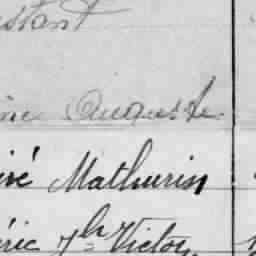 stant
ine Auguste
iré Mathurin
éric Jh Victor